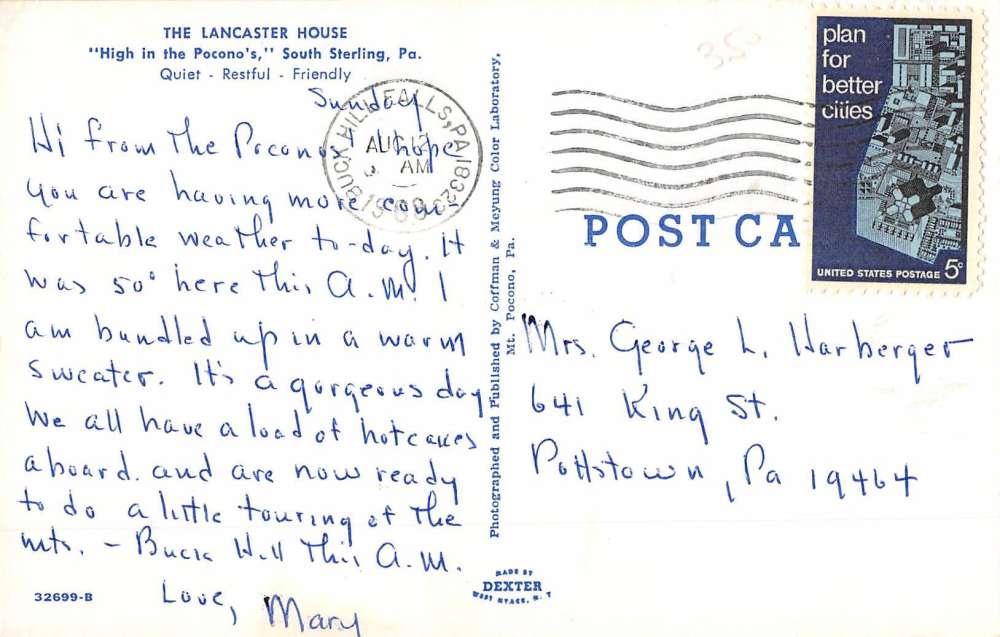 THE LANCASTER HOUSE
"High in the Pocono's," South Sterling, Pa.
Quiet - Restful - Friendly
Sunday
Hi from the Poconos! I hope
you are having more com-
fortable weather to-day. It
was 50° here this A.M. I
am bundled up in a warm
sweater. It's a gorgeous day
We all have a load of hotcakes
aboard and are now ready
to do a little touring of the
mts. - Buck Hill this A.M.
Love,
Mary
32699-B
Photographed and Published by Coffman & Meyung Color Laboratory,
Mt. Pocono, Pa.
MADE BY
DEXTER
WEST NYACK, N. Y
BUCK HILL FALLS, PA
AUG
AM
3.50
plan
for
better
cities
UNITED STATES POSTAGE 5c
POST CA
Mrs. George L. Harberger
641 King St.
Pottstown, Pa 19464